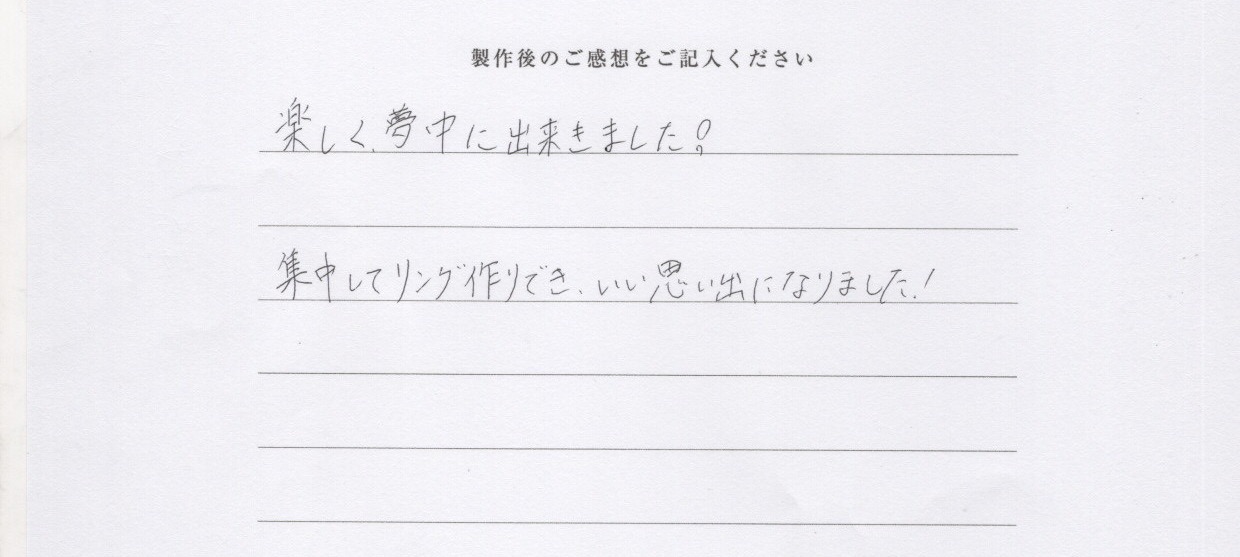 製作後のご感想をご記入ください
楽しく、夢中に出来きました!
集中してリング作りでき、いい思い出になりました!